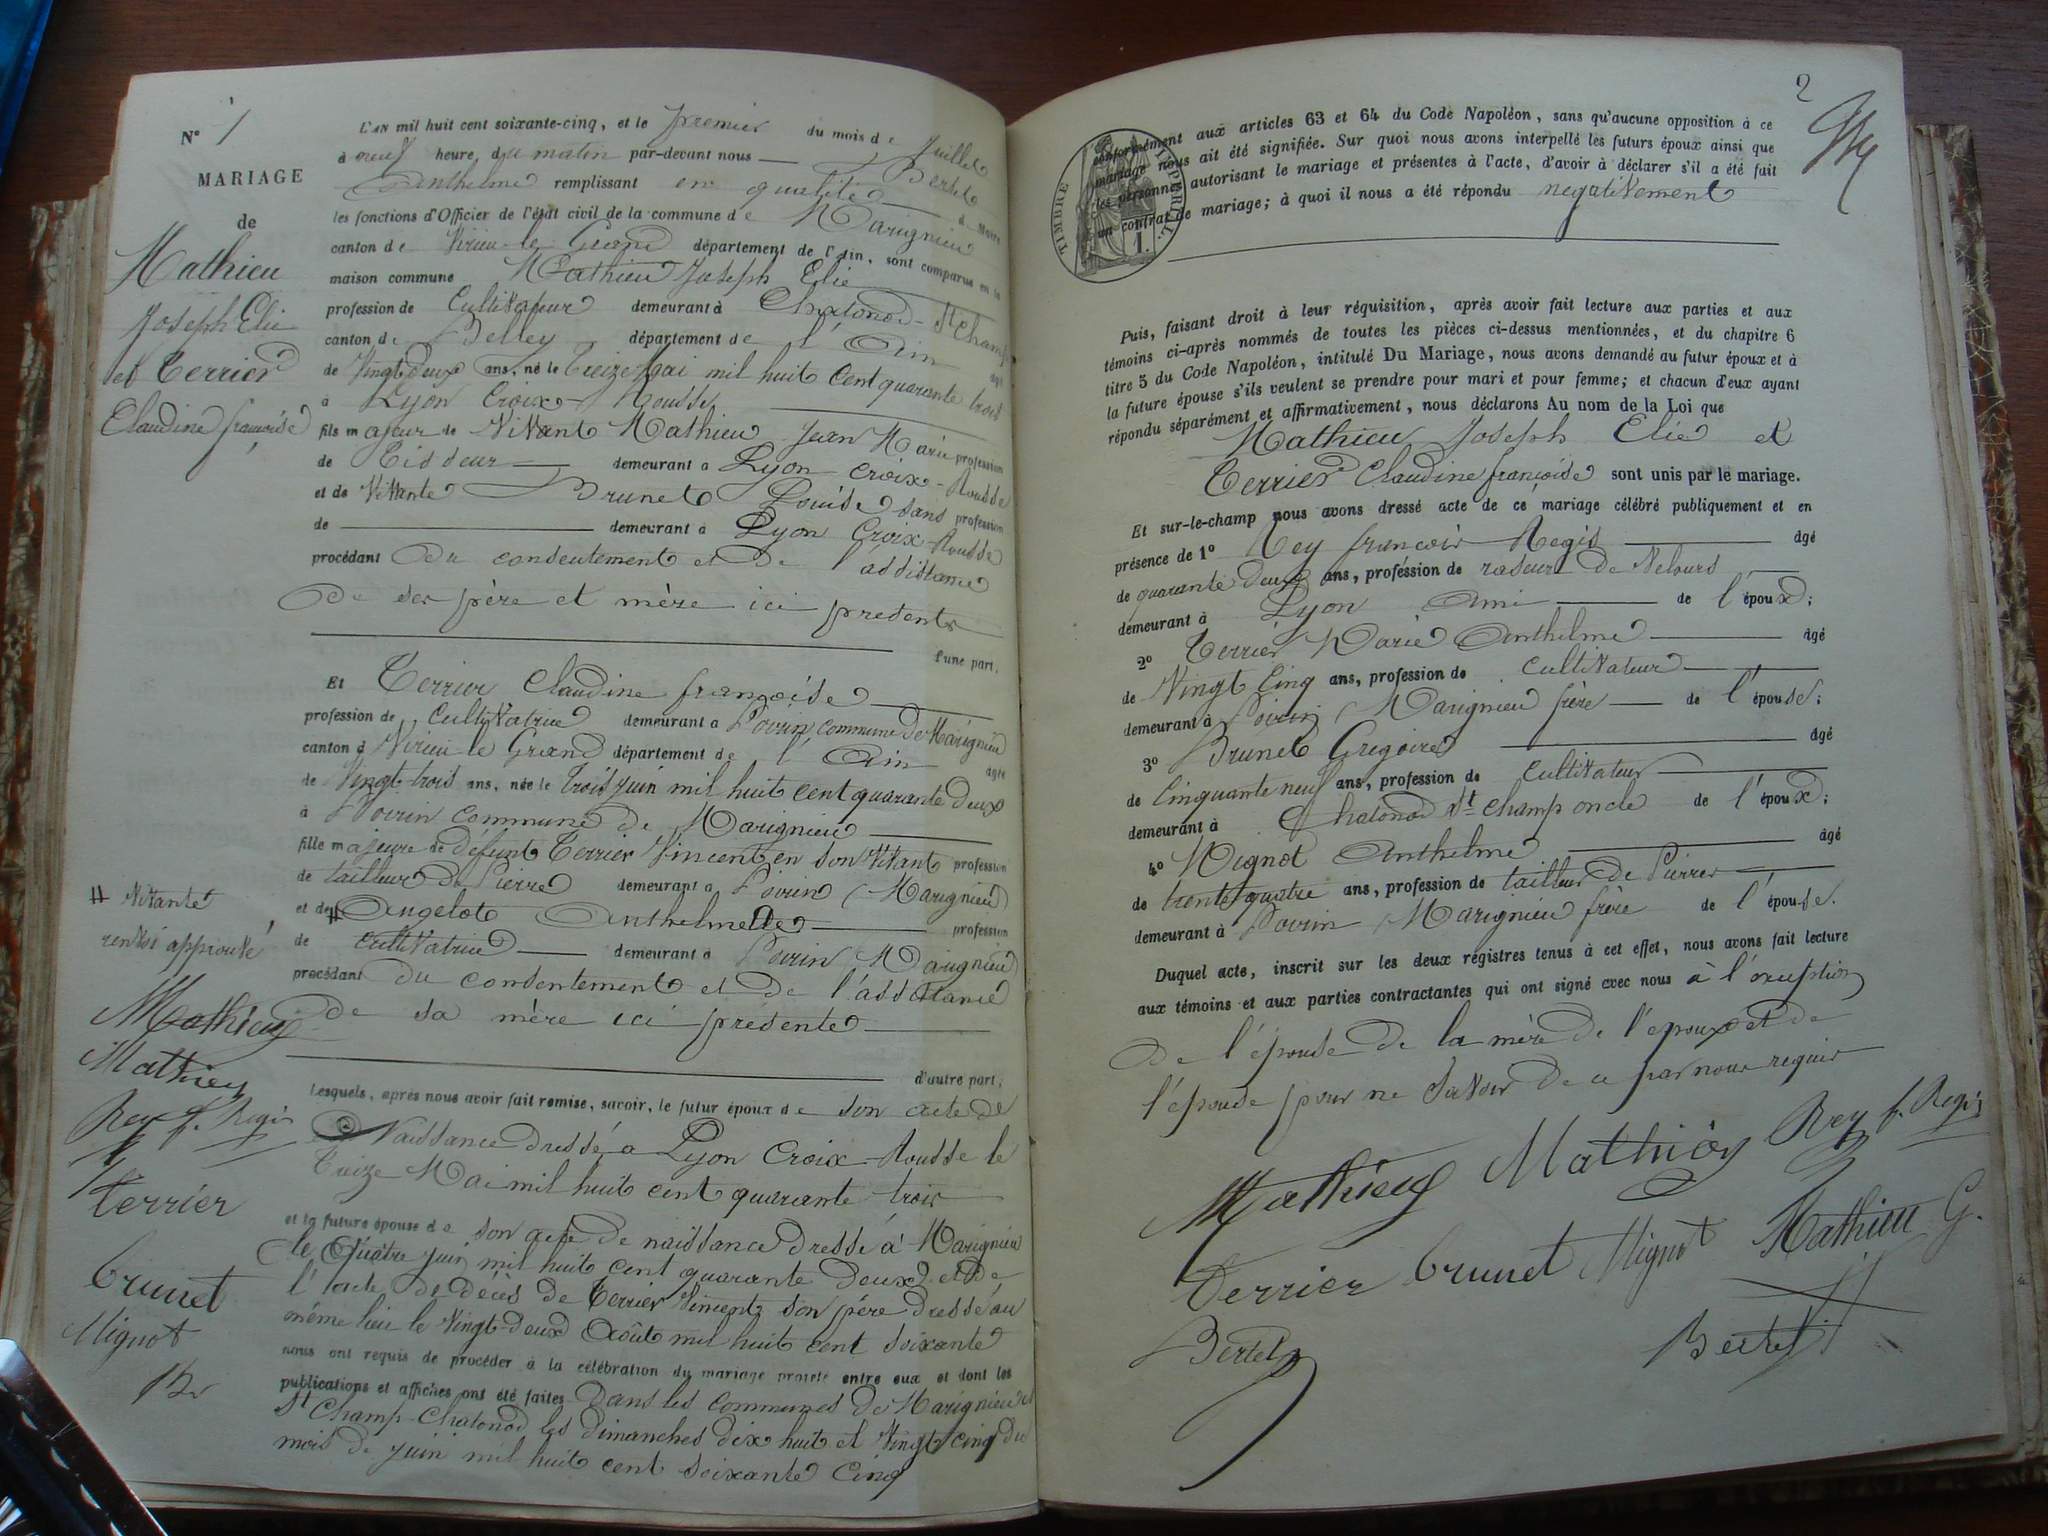 N° 1
MARIAGE
de
Mathieu
Joseph Elie
et Terrier
Claudine françoise
L'AN mil huit cent soixante-cinq, et le premier du mois de Juillet
à neuf heure du matin par-devant nous Bertet
Anthelme remplissant en qualité de Maire
les fonctions d'Officier de l'état civil de la commune de Marignieu
canton de Virieu-le Grand département de l'Ain, sont comparus en la
maison commune Mathieu Joseph Elie
profession de Cultivateur demeurant à Chatonod-St Champ
canton de Belley département de l'Ain âgé
de Vingt deux ans, né le treize Mai mil huit Cent quarante trois
à Lyon Croix-Rousse
fils majeur de Vivant Mathieu Jean Marie profession
de Tisseur demeurant a Lyon Croix-Rousse
et de Vivante Brunet Louise sans profession
de demeurant à Lyon Croix-Rousse
procédant du consentement et de l'assistance
de ses père et mère ici presents
l'une part,
Et Terrier Claudine françoise
profession de cultivatrice demeurant a Poirin commune de Marignieu
canton d Virieu-le Grand département de l'Ain âgée
de Vingt-trois ans, née le trois juin mil huit cent quarante deux
à Poirin commune de Marignieu
fille majeure de défunt Terrier Vincent en son Vivant profession
de tailleur de Pierre demeurant a Poirin (Marignieu)
et de # Angelot Anthelmette profession
de cultivatrice demeurant a Poirin Marignieu
procédant du consentement et de l'assistance
de sa mère ici presente
d'autre part,
# Vivante
renvoi approuvé
Mathieu
Mathieu
Rey f. Regis
terrier
brunet
Mignot
Br
Lesquels, après nous avoir fait remise, savoir, le futur époux de son acte de
Naissance dressé a Lyon Croix-Rousse le
treize Mai mil huit cent quarante trois
et la future épouse de son acte de naissance dressé à Marignieu
le Quatre juin mil huit cent quarante deux et de
l'acte de décès de Terrier Vincent son père dressé au
même lieu le Vingt-deux Août mil huit cent soixante
nous ont requis de procéder à la célébration du mariage projeté entre eux et dont les
publications et affiches ont été faites dans les communes de Marignieu et
St Champ-Chatonod les dimanches dix huit et Vingt cinq du
mois de juin mil huit cent soixante Cinq
2
TIMBRE IMPERIAL
conformément aux articles 63 et 64 du Code Napoléon, sans qu'aucune opposition à ce
mariage nous ait été signifiée. Sur quoi nous avons interpellé les futurs époux ainsi que
les personnes autorisant le mariage et présentes à l'acte, d'avoir à déclarer s'il a été fait
un contrat de mariage; à quoi il nous a été répondu negativement
Puis, faisant droit à leur réquisition, après avoir fait lecture aux parties et aux
témoins ci-après nommés de toutes les pièces ci-dessus mentionnées, et du chapitre 6
titre 5 du Code Napoléon, intitulé Du Mariage, nous avons demandé au futur époux et à
la future épouse s'ils veulent se prendre pour mari et pour femme; et chacun d'eux ayant
répondu séparément et affirmativement, nous déclarons Au nom de la Loi que
Mathieu Joseph Elie et
Terrier Claudine françoise sont unis par le mariage.
Et sur-le-champ nous avons dressé acte de ce mariage célébré publiquement et en
présence de 1° Rey francois Regis âgé
de quarante deux ans, profession de raseur de Velours
demeurant à Lyon Ami de l'époux;
2° Terrier Marie Anthelme âgé
de Vingt Cinq ans, profession de cultivateur
demeurant à Poirin Marignieu frère de l'épouse;
3° Brunet Gregoire âgé
de Cinquante neuf ans, profession de cultivateur
demeurant à Chatonod St champ oncle de l'époux;
4° Mignot Anthelme âgé
de trente quatre ans, profession de tailleur de Pierres
demeurant à Poirin Marignieu frère de l'épouse.
Duquel acte, inscrit sur les deux régistres tenus à cet effet, nous avons fait lecture
aux témoins et aux parties contractantes qui ont signé avec nous à l'exeption
de l'épouse de la mère de l'epoux et de
l'épouse pour ne Savoir de ce par nous requis
Mathieu Mathieu Rey f. Regis
Terrier brunet Mignot Mathieu G.
Bertet Bertet